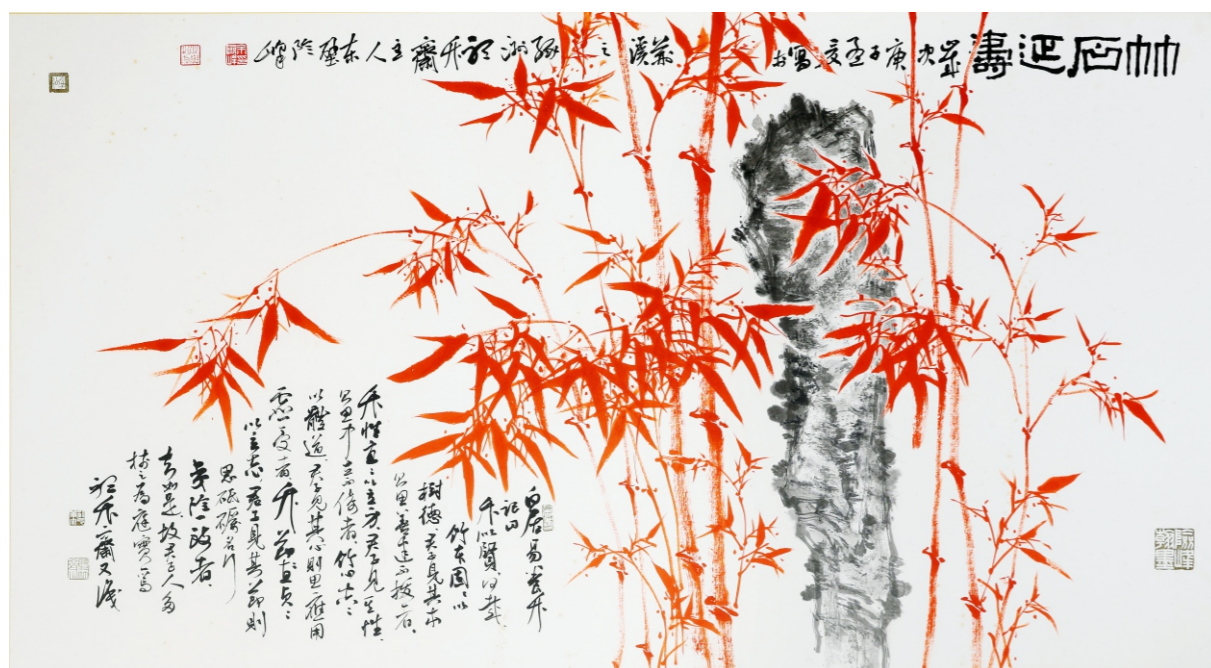 竹石延壽
歲次庚子孟夏寫於
之綠洲 竹齋主人東壁
白居易養竹
記曰
竹以賢何哉
竹本固〻以
樹德君子見其本
則思善建不拔者
竹性直〻以立身君子見其性
則思中立不倚者竹心空〻
以體道君子見其心則思應用
虛受者竹節貞〻
以立志君子見其節則
思砥礪名行
夷險 者
夫如是故君子人多
樹之為庭實焉
竹齋又識
翰墨